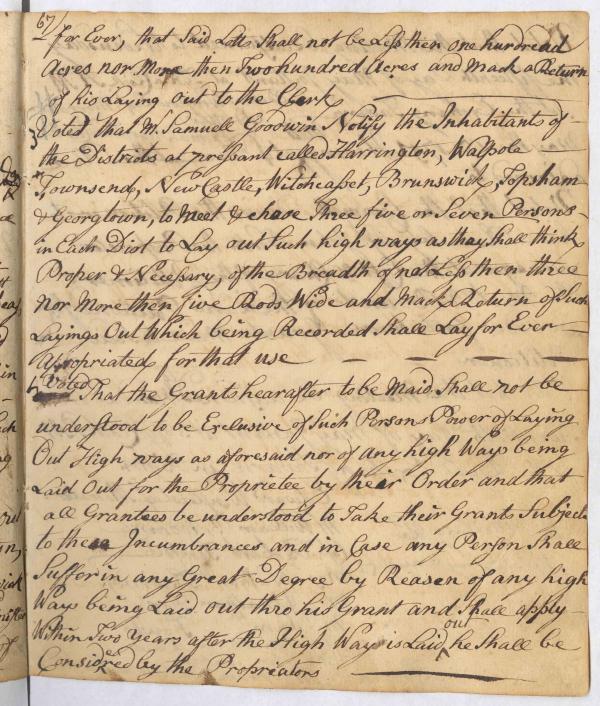 67
for Ever, that Said Lotts Shall not be Less then one hundread
Acres nor More then Two hundred Acres and Mack a Return
of his Laying out to the Clerk
5 Voted that Mr. Samuell Goodwin Notify the Inhabitants of
the Districts at pressant called Harrington, Walpole
Townsend, New Castle, Witchcasset, Brunswick, Topsham
& Georgtown, to Meet & chose Three five or Seven Persons
in Each Dist to Lay out Such high ways as thay Shall think
Proper & Necessary, of the Breadth of not Less then three
nor More then five Rods Wide and Mack Return of Such
Layings Out Which being Recorded Shall Lay for Ever
Apropriated for that use
Voted That the Grants hearafter to be Maid Shall not be
understood to be Exclusive of Such Persons Power of Laying
Out High ways as aforesaid nor of any high Ways being
Laid Out for the Proprietee by their Order and that
all Grantees be understood to Take their Grants Subject
to these Incumbrances and in Case any Person Shall
Suffor in any Great Degree by Reasen of any high
Ways being Laid out thro his Grant and Shall apply
Within Two Years after the High Way is Laid out he Shall be
Considered by the Propriators